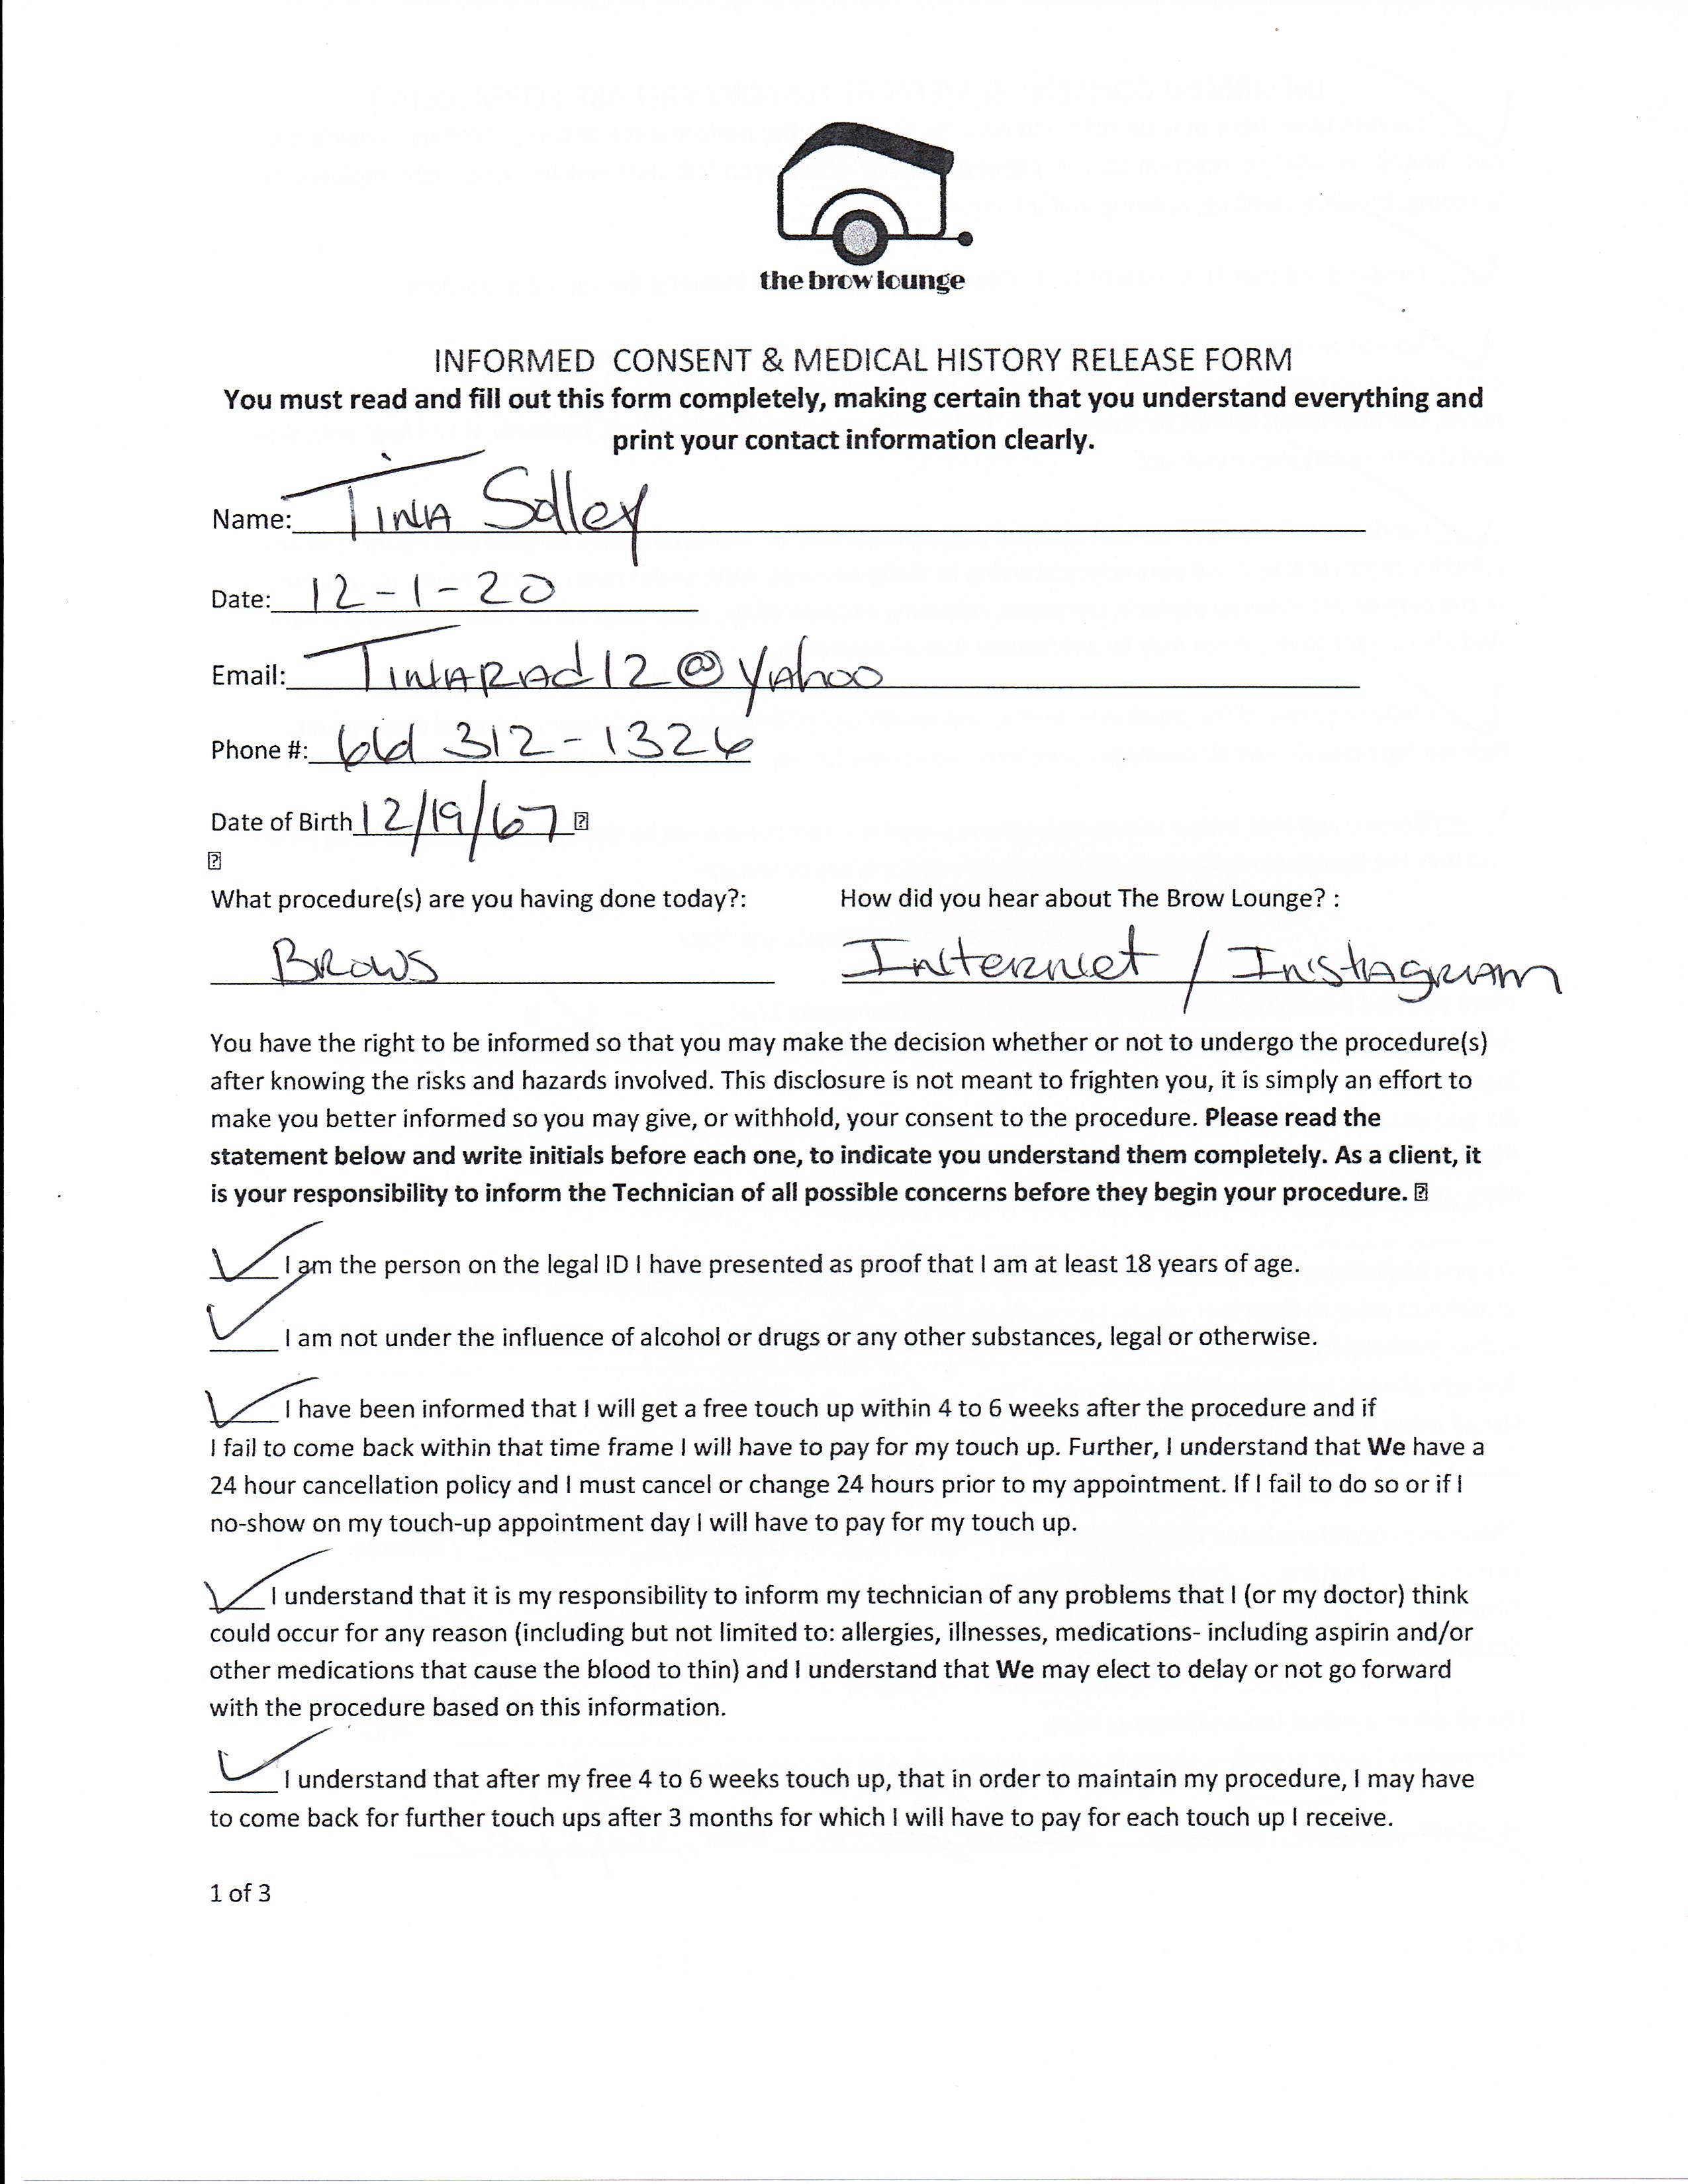 the brow lounge
INFORMED CONSENT & MEDICAL HISTORY RELEASE FORM
You must read and fill out this form completely, making certain that you understand everything and
print your contact information clearly.
Name: Tina Solley
Date: 12-1-20
Email: TinaRad12@yahoo
Phone #: 661 312-1326
Date of Birth 12/19/67
What procedure(s) are you having done today?: How did you hear about The Brow Lounge? :
Brows Internet / Instagram
You have the right to be informed so that you may make the decision whether or not to undergo the procedure(s)
after knowing the risks and hazards involved. This disclosure is not meant to frighten you, it is simply an effort to
make you better informed so you may give, or withhold, your consent to the procedure. Please read the
statement below and write initials before each one, to indicate you understand them completely. As a client, it
is your responsibility to inform the Technician of all possible concerns before they begin your procedure.
I am the person on the legal ID I have presented as proof that I am at least 18 years of age.
I am not under the influence of alcohol or drugs or any other substances, legal or otherwise.
I have been informed that I will get a free touch up within 4 to 6 weeks after the procedure and if
I fail to come back within that time frame I will have to pay for my touch up. Further, I understand that We have a
24 hour cancellation policy and I must cancel or change 24 hours prior to my appointment. If I fail to do so or if I
no-show on my touch-up appointment day I will have to pay for my touch up.
I understand that it is my responsibility to inform my technician of any problems that I (or my doctor) think
could occur for any reason (including but not limited to: allergies, illnesses, medications- including aspirin and/or
other medications that cause the blood to thin) and I understand that We may elect to delay or not go forward
with the procedure based on this information.
I understand that after my free 4 to 6 weeks touch up, that in order to maintain my procedure, I may have
to come back for further touch ups after 3 months for which I will have to pay for each touch up I receive.
1 of 3